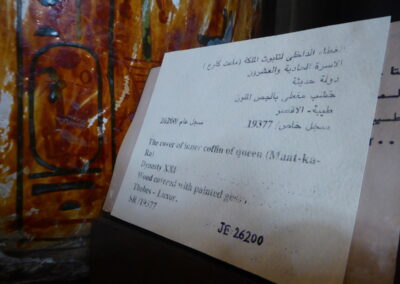 غطاء الداخلى لتابوت الملكة (ماعت كارع)
الاسرة الحادية والعشرون
دولة حديثة
خشب مغطى بالجص الملون
طيبة - الاقصر
سجل عام 26200
سجل خاص / 19377
The cover of inner coffin of queen (Maat-ka-
Ra)
Dynasty XXI
Wood covered with painted gesso,
Thebes - Luxor.
SR /19377
JE 26200